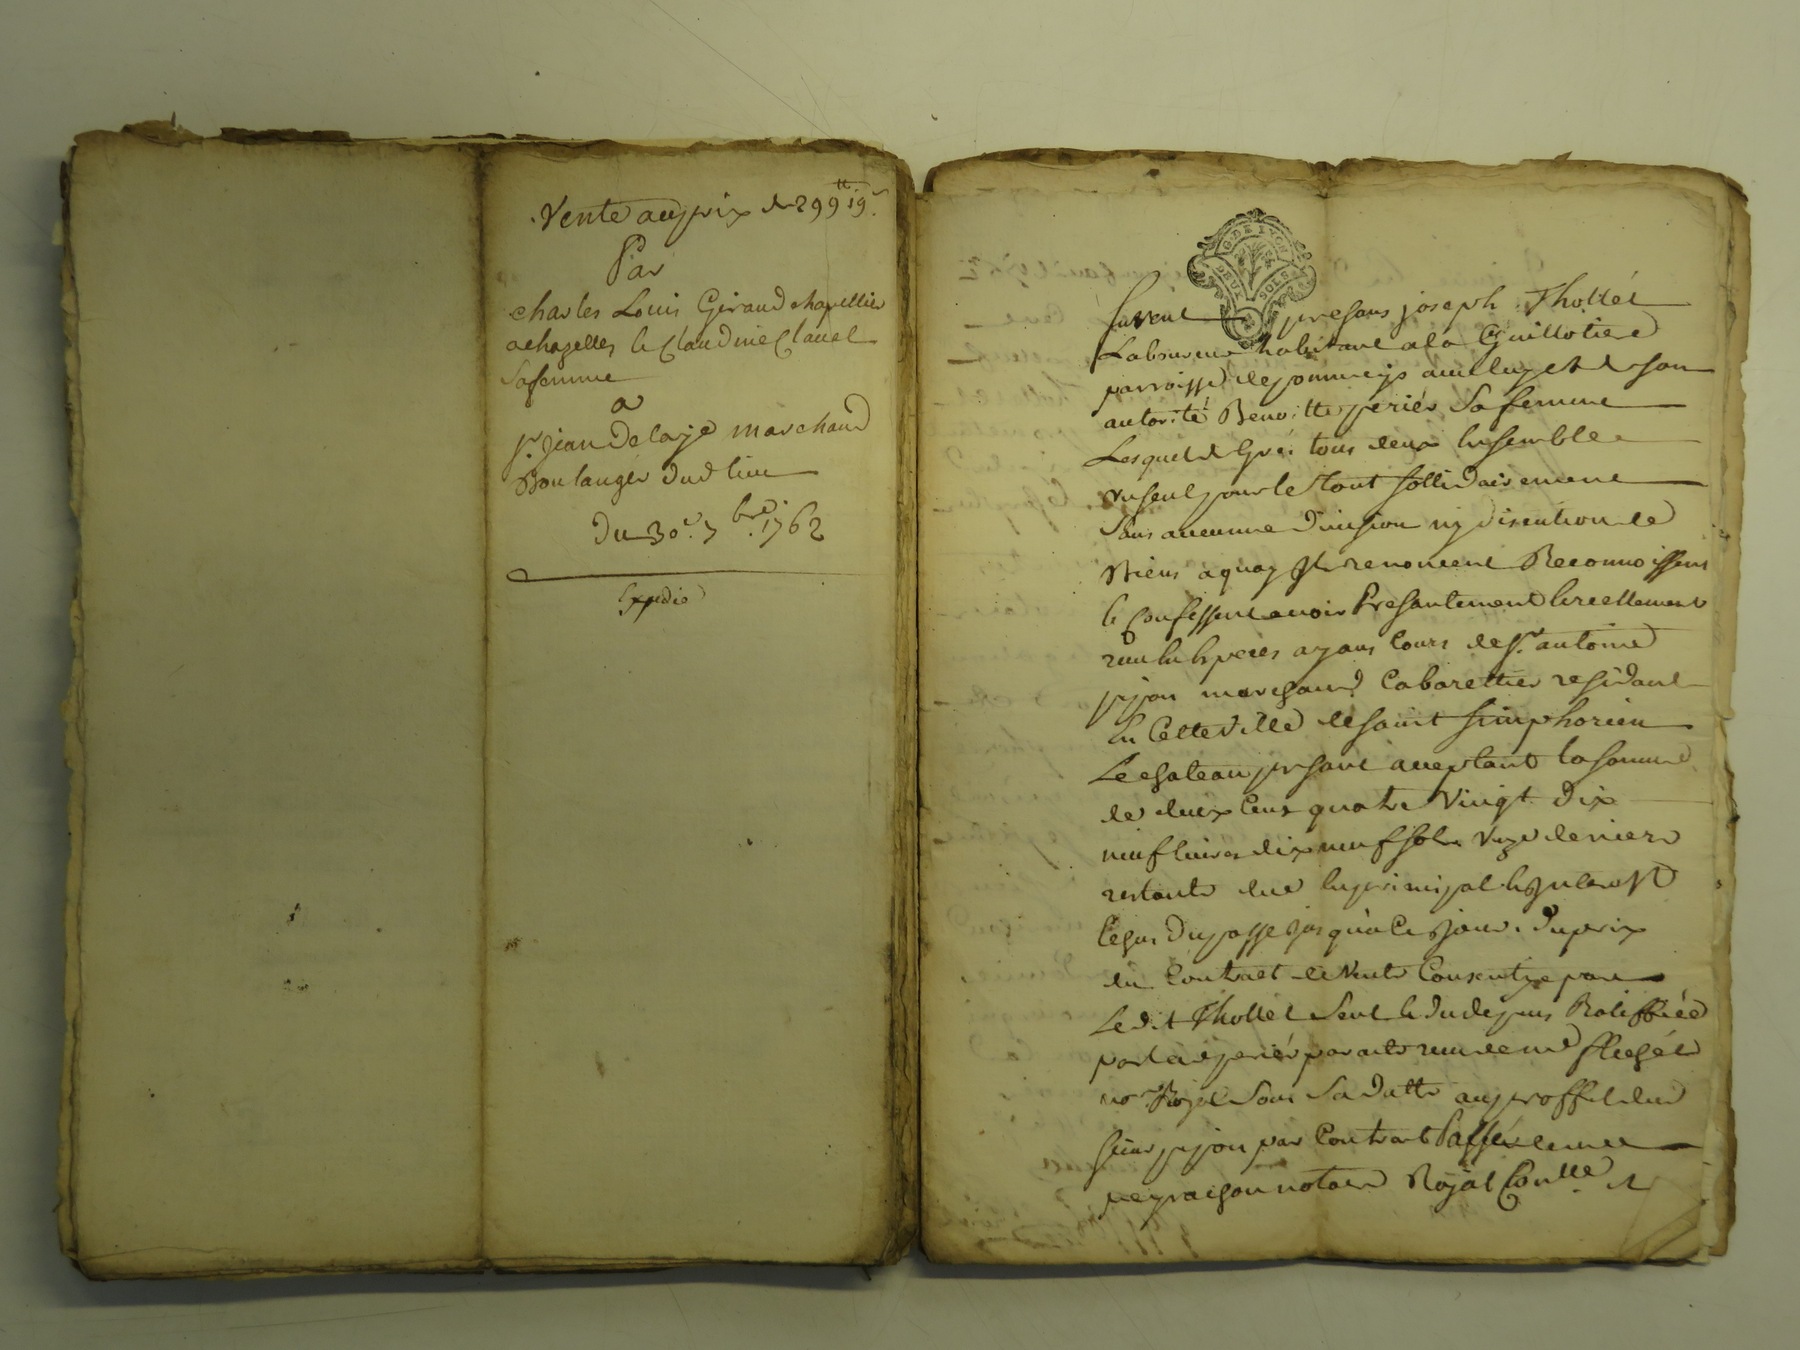 Vente au prix de 299ᵗᵗ 19ˢ
Par
charles Louis Giraud chapellier
a chazelles et Claudine Clavel
Sa femme
a
Sʳ. jean Delaje marchand
Boulanger dud lieu
Du 30ᵉ. 7bre. 1762
Expedié
G. DE LYON
DEUX SOLS
furent presans joseph Thollet
Laboureur habitant a la Guillotiere
parroisse de pommeys avec luy et de son
autorité Benoitte perier Sa femme
Lesquels de Gré tous deux Ensemble
un seul pour le tout sollidairement
Sans aucune division ny discution de
Biens a quoy Ils renoncent Reconnoissent
et Confessent avoir Presantement et reellement
recu En Especes ayans Cours de Sʳ. antoine
pijon marchand Cabarettier residant
En Cette Ville de saint simphorien
Le chateau presant acceptant la somme
de deux Cens quatre Vingt dix
neuf livres dix neuf sols onze deniers
restante due En principal et Interest
Legus du passe jusqu'a Ce jour. du prix
du Contract de Vente Consentye par
Ledit Thollet Seul et du depuis Ratiffiée
par lad perier par acte recu de me
noʳᵉ Royal Sous Sa datte au proffit dud
sieur pijon par Contract Passé devant me
notaire Royal